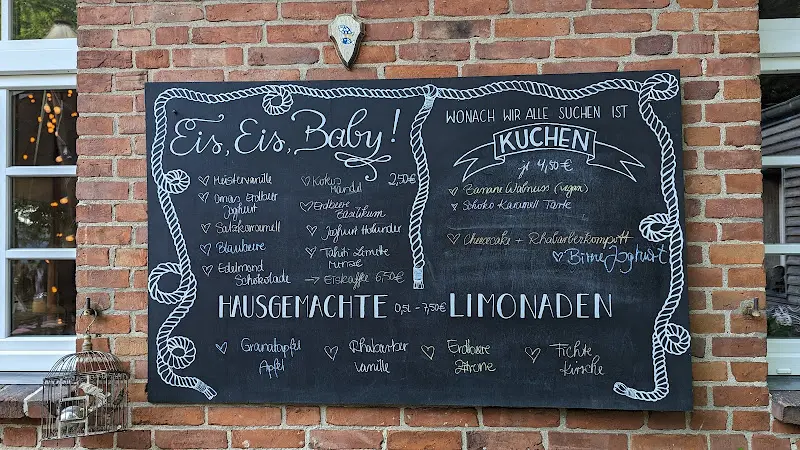 Eis, Eis, Baby!
Meistervanille
Omas Erdbeer
Joghurt
Salzkaramell
Blaubeere
Edelmond
Schokolade
Kokos 2,50€
Mandel
Erdbeere
Basilikum
Joghurt Holunder
Tahiti Limette
Eiskaffee 6,50€
WONACH WIR ALLE SUCHEN IST
KUCHEN
je 4,50€
Banane Walnuss (vegan)
Schoko Karamell Tarte
Cheesecake + Rhabarberkompott
Birne Joghurt
HAUSGEMACHTE 0,5L - 7,50€ LIMONADEN
Granatapfel
Apfel
Rhabarber
Vanille
Erdbeere
Zitrone
Fichte
Kirsche